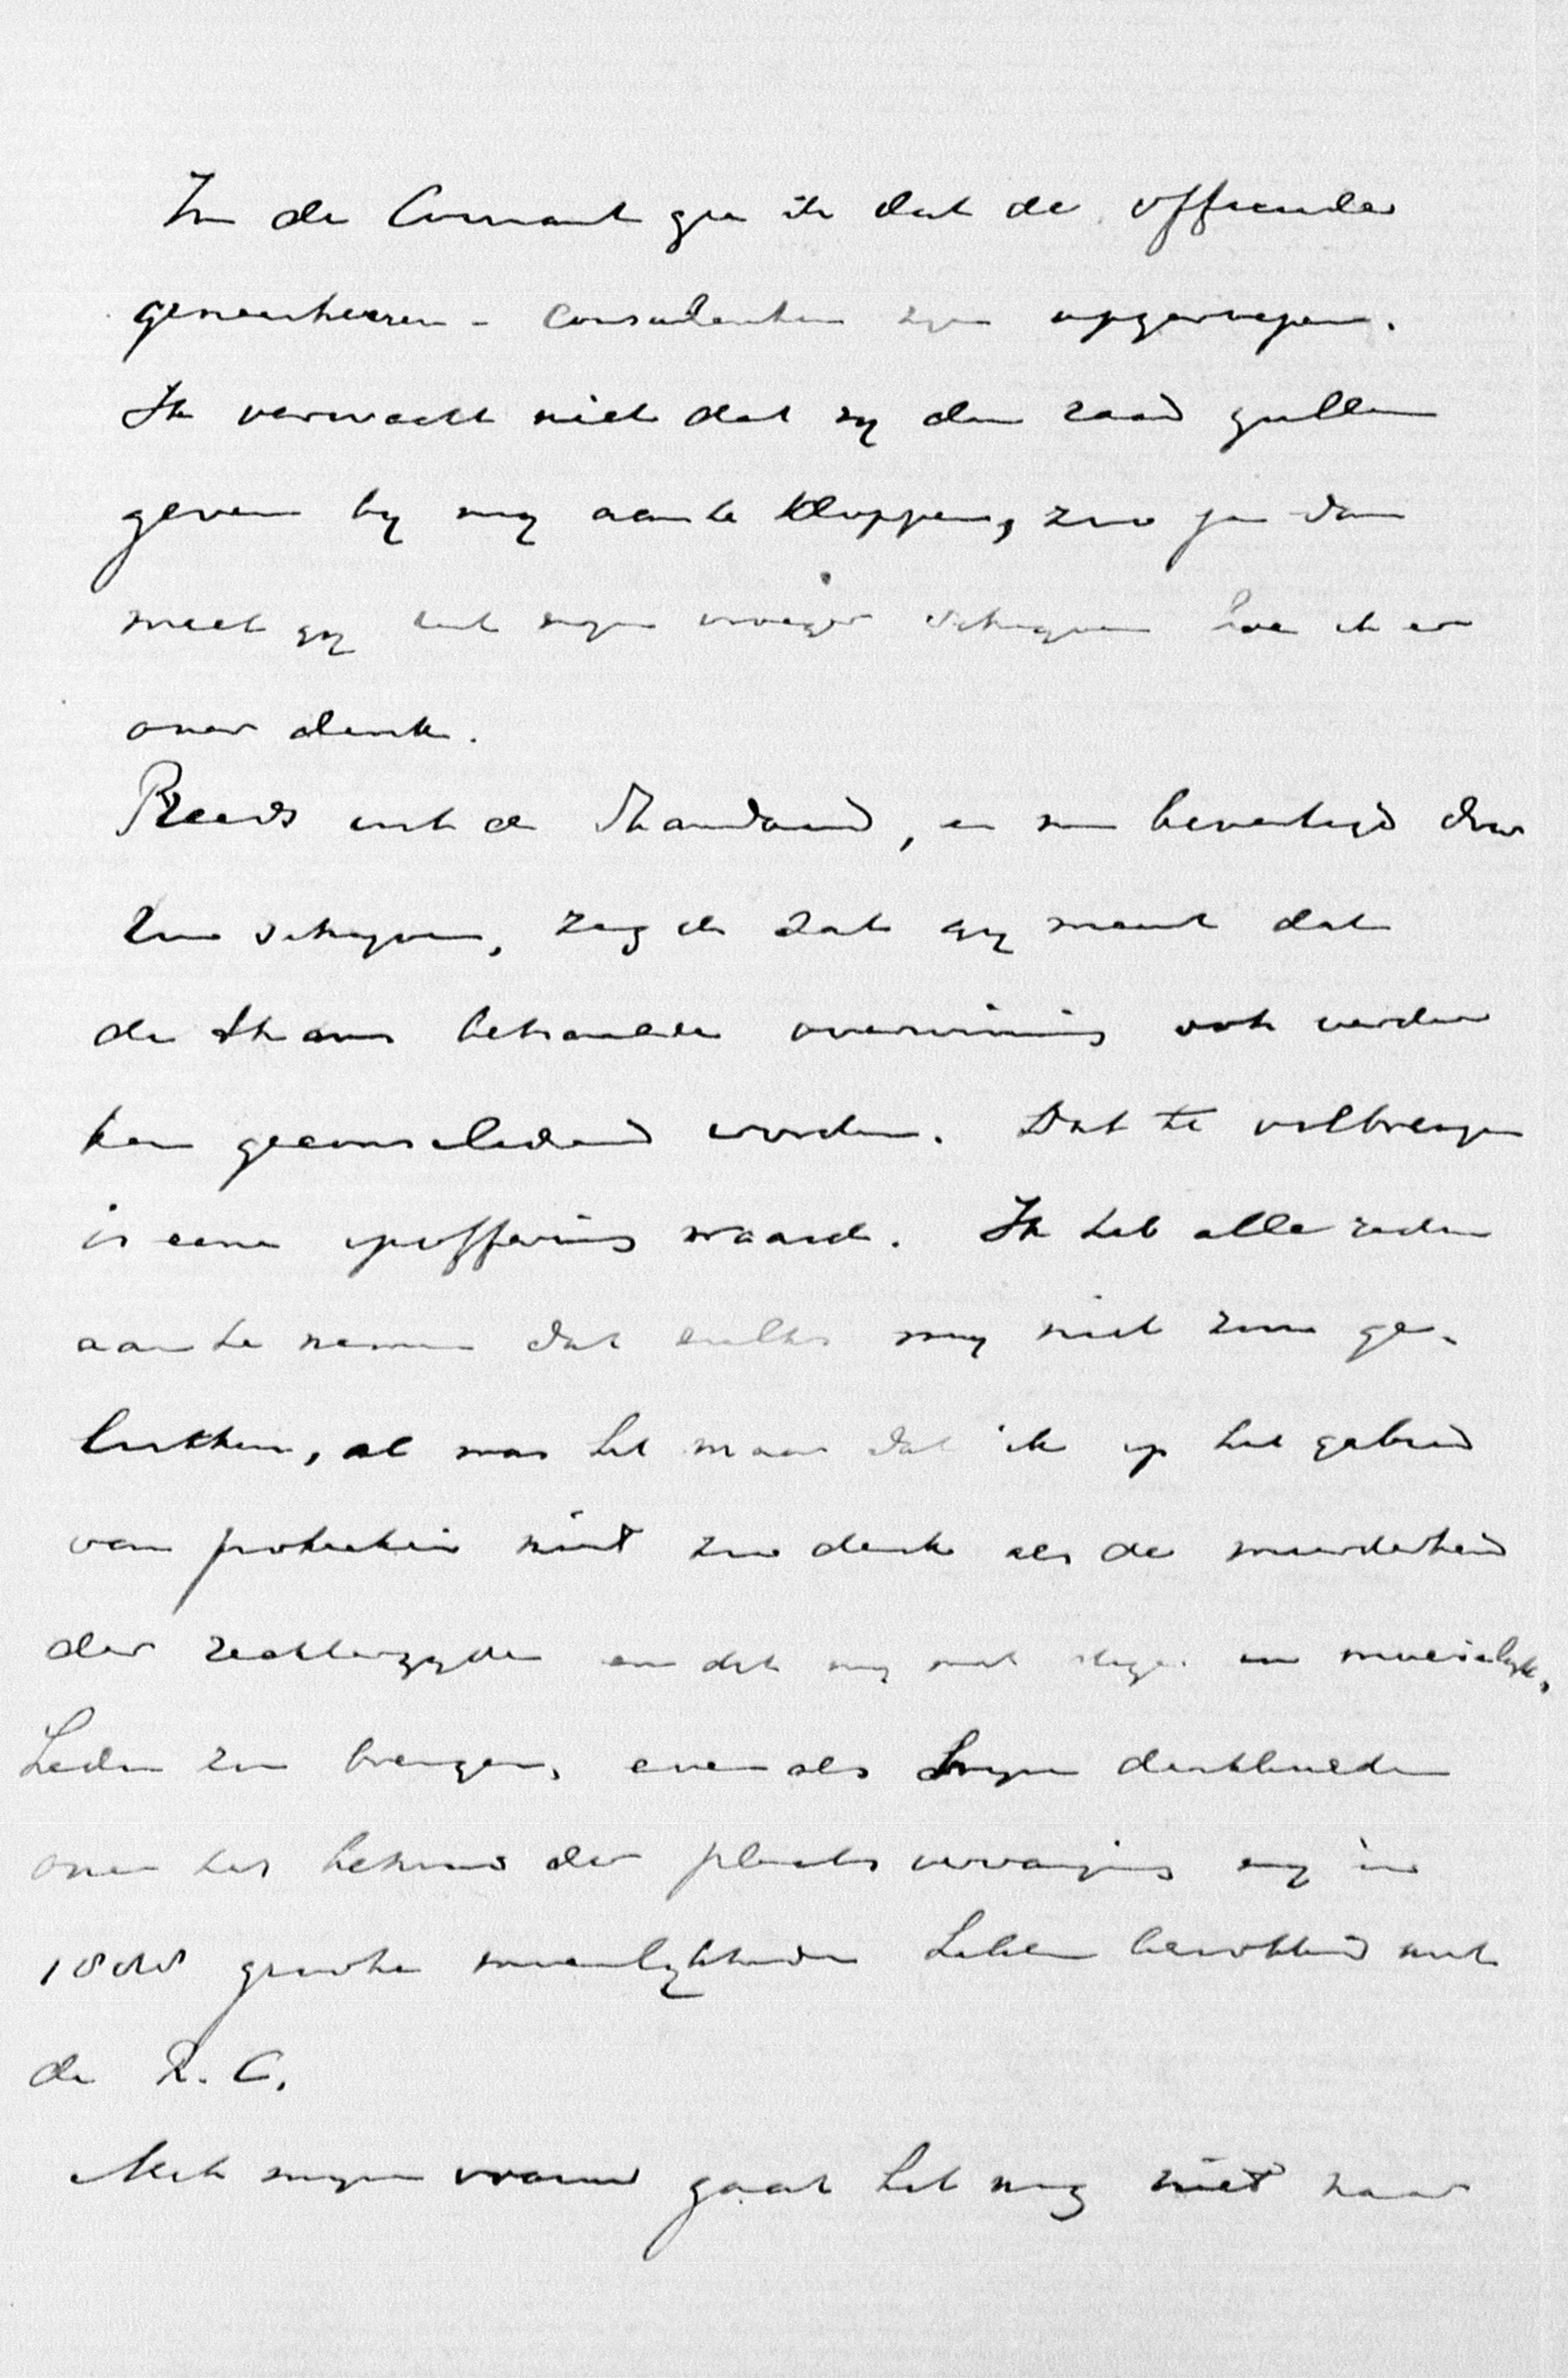 In de Courant zie ik dat de officieele
geneesheeren - consulenten zijn opgeroepen.
Ik verwacht niet dat zij den raad zullen
geven bij mij aan te kloppen, zoo ja dan
weet gij uit mijn vroeger schrijven hoe ik er
over denk.
Reeds uit de Standaard, en nu bevestigd door
Uw schrijven, zag ik dat gij meent dat
de thans behaalde overwinning ook verder
kan geconsolideerd worden. Dat te volbrengen
is eene opoffering waard. Ik heb alle reden
aan te nemen dat zulks mij niet zou ge-
lukken, al was het maar dat ik op het gebied
van protectie niet zoo denk als de meerderheid
der rechterzijde en dit mij met in moeielijk-
heden zou brengen, evenals mijn denkbeelden
over het behoud der plaatsvervanging mij in
1888 groote moeielijkheden hebben berokkend met
de R. C.
Met mijn vrouw gaat het nog niet naar